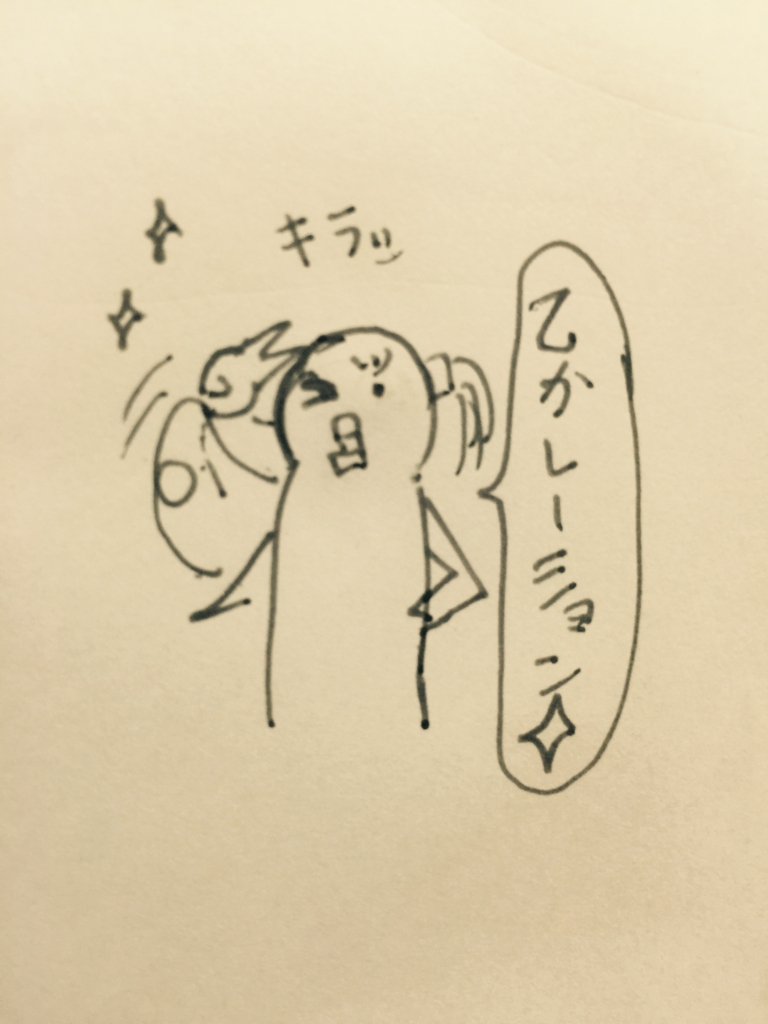 キラッ
乙かレーション